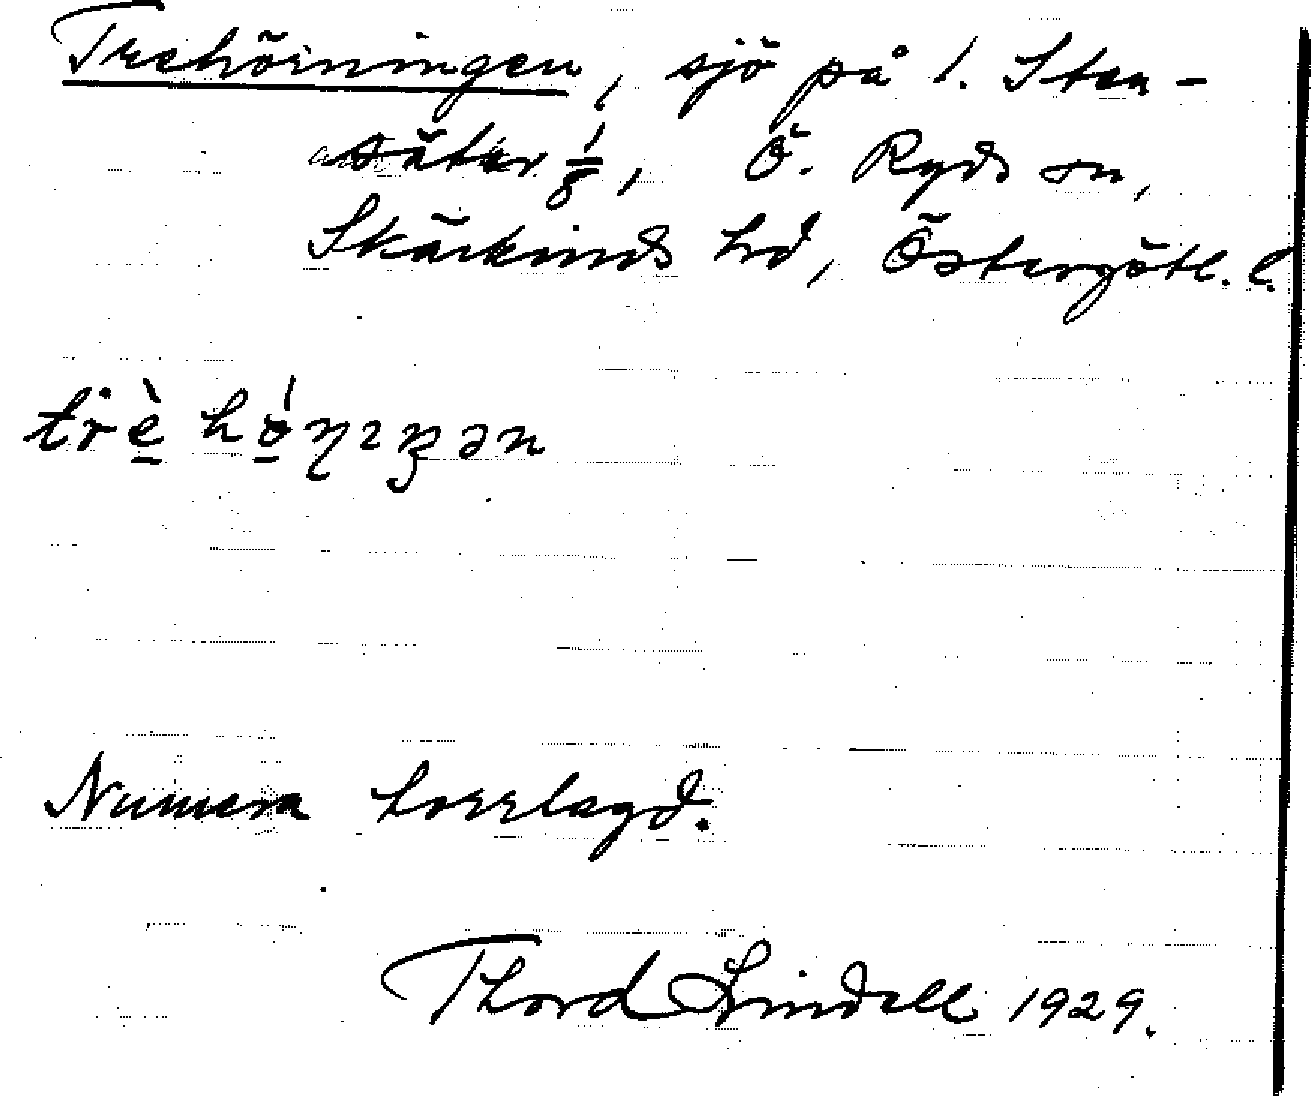 Trehörningen, sjö på 1. Sten-
säter 1/8, Ö. Ryds sn,
Skärkinds hd, Östergötl. l.
Numera torrlagd.
Thord Lindell 1929.